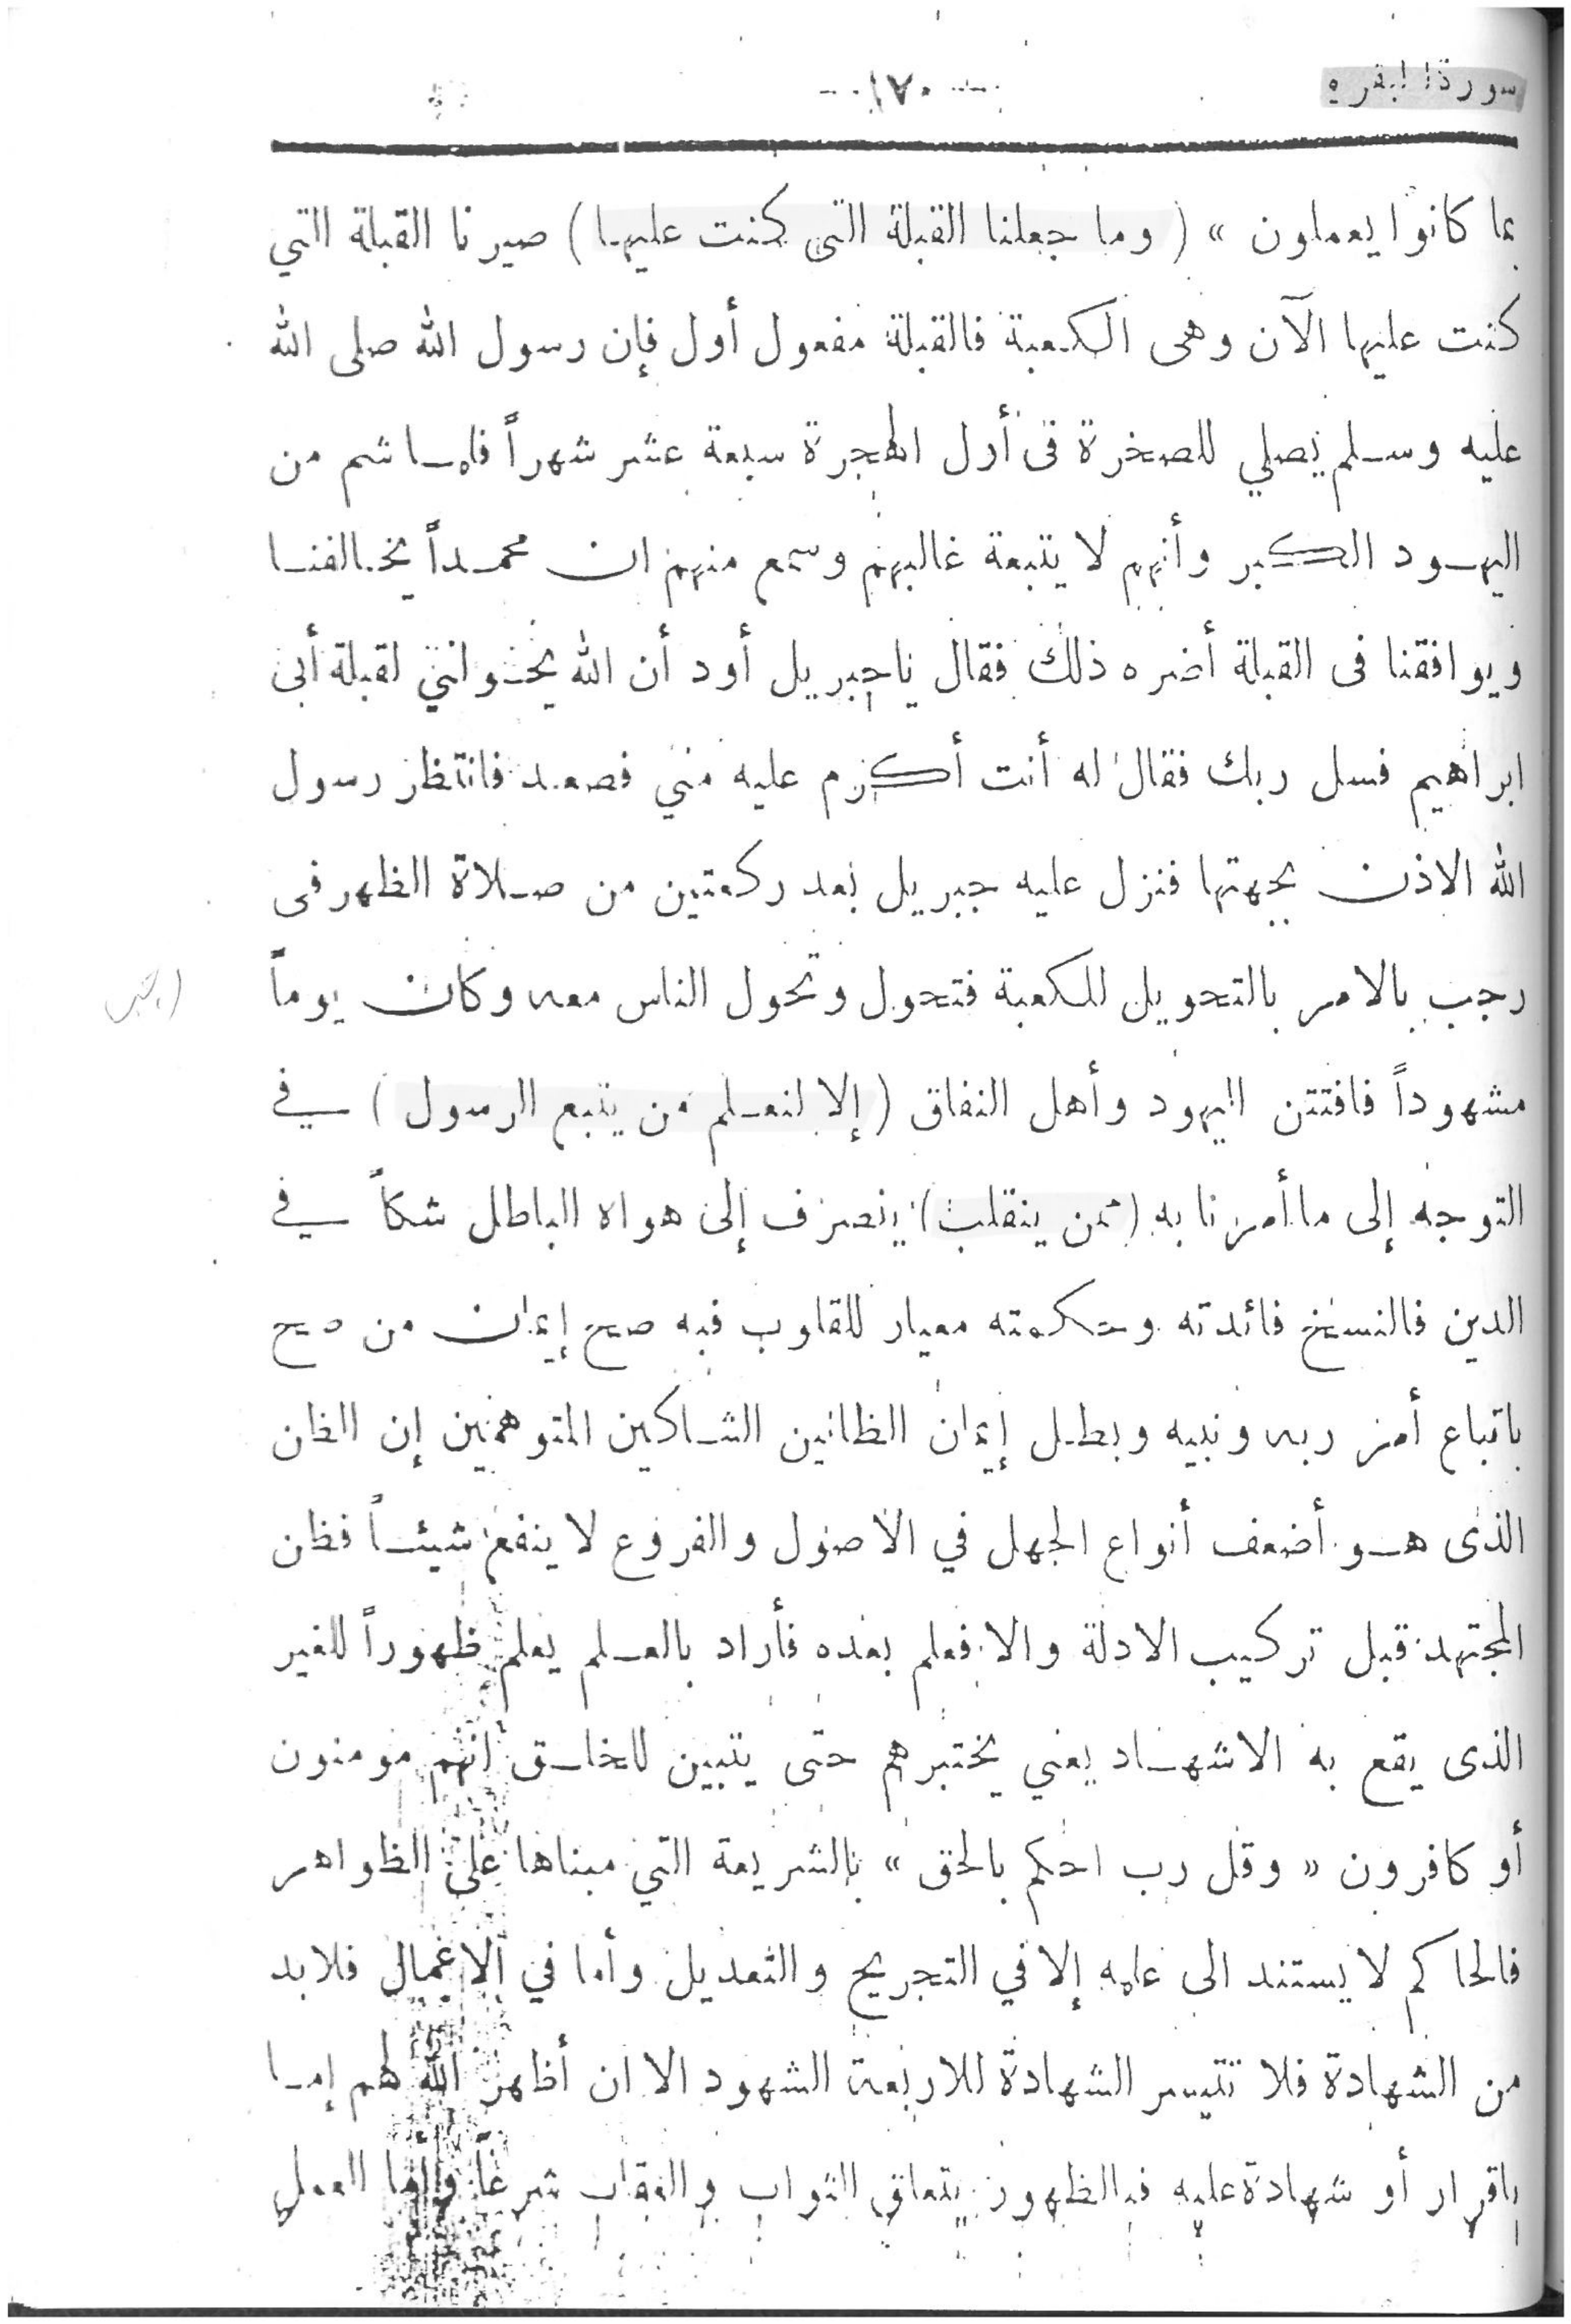 سورة البقره
-١٧٠-
بما كانوا يعملون » ( وما جعلنا القبلة التى كنت عليها ) صيرنا القبلة التي
كنت عليها الآن وهى الكعبة فالقبلة مفعول أول فإن رسول الله صلى الله
عليه وسلم يصلي للصخرة فى أول الهجرة سبعة عشر شهراً فلما شم من
اليهود الكبر وأنهم لا يتبعه غالبهم وسمع منهم ان محمداً يخالفنا
ويوافقنا فى القبلة أضره ذلك فقال ياجبريل أود أن الله يحولني لقبلة أبى
ابراهيم فسل ربك فقال له أنت أكرم عليه مني فصعد فانتظر رسول
الله الاذن بجهتها فنزل عليه جبريل بعد ركعتين من صلاة الظهر فى
رجب بالامر بالتحويل للكعبة فتحول وتحول الناس معه وكان يوماً
مشهوداً فافتتن اليهود وأهل النفاق ( إلا لنعلم من يتبع الرسول ) في
التوجه إلى ما أمرنا به ( ممن ينقلب ) ينصرف إلى هواه الباطل شكاً في
الدين فالنسخ فائدته وحكمته معيار للقلوب فبه صح إيمان من صح
باتباع أمر ربه ونبيه وبطل إيمان الظانين الشاكين المتوهمين إن الظن
الذى هو أضعف أنواع الجهل في الاصول والفروع لا ينفع شيئاً فظن
المجتهد قبل تركيب الادلة والا فعلم بعده فأراد بالعلم يعلم ظهوراً للغير
الذى يقع به الاشهاد يعني يختبرهم حتى يتبين للخلق أنهم مومنون
أو كافرون « وقل رب احكم بالحق » بالشريعة التي مبناها على الظواهر
فالحاكم لا يستند الى علمه إلا في التجريح والتعديل وأما في الاعمال فلابد
من الشهادة فلا تتيسر الشهادة للاربعة الشهود الا ان أظهر الله لهم إما
باقرار أو شهادة عليه فبالظهور يتعلق الثواب والعقاب شرعاً وأما العمل